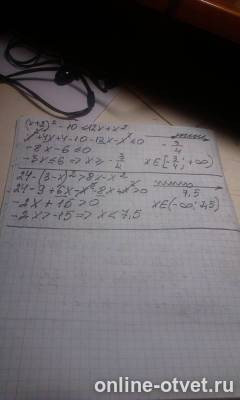 (x+2)² - 10 ≤ 12x + x²
x² + 4x + 4 - 10 - 12x - x² ≤ 0
-8x - 6 ≤ 0
-8x ≤ 6 => x ≥ -3/4 x∈[-3/4; +∞)
-3/4
24 - (3-x)² > 8x - x²
24 - 9 + 6x - x² - 8x + x² > 0
7,5
-2x + 15 > 0 x∈(-∞; 7,5)
-2x > -15 => x < 7,5
online-otvet.ru